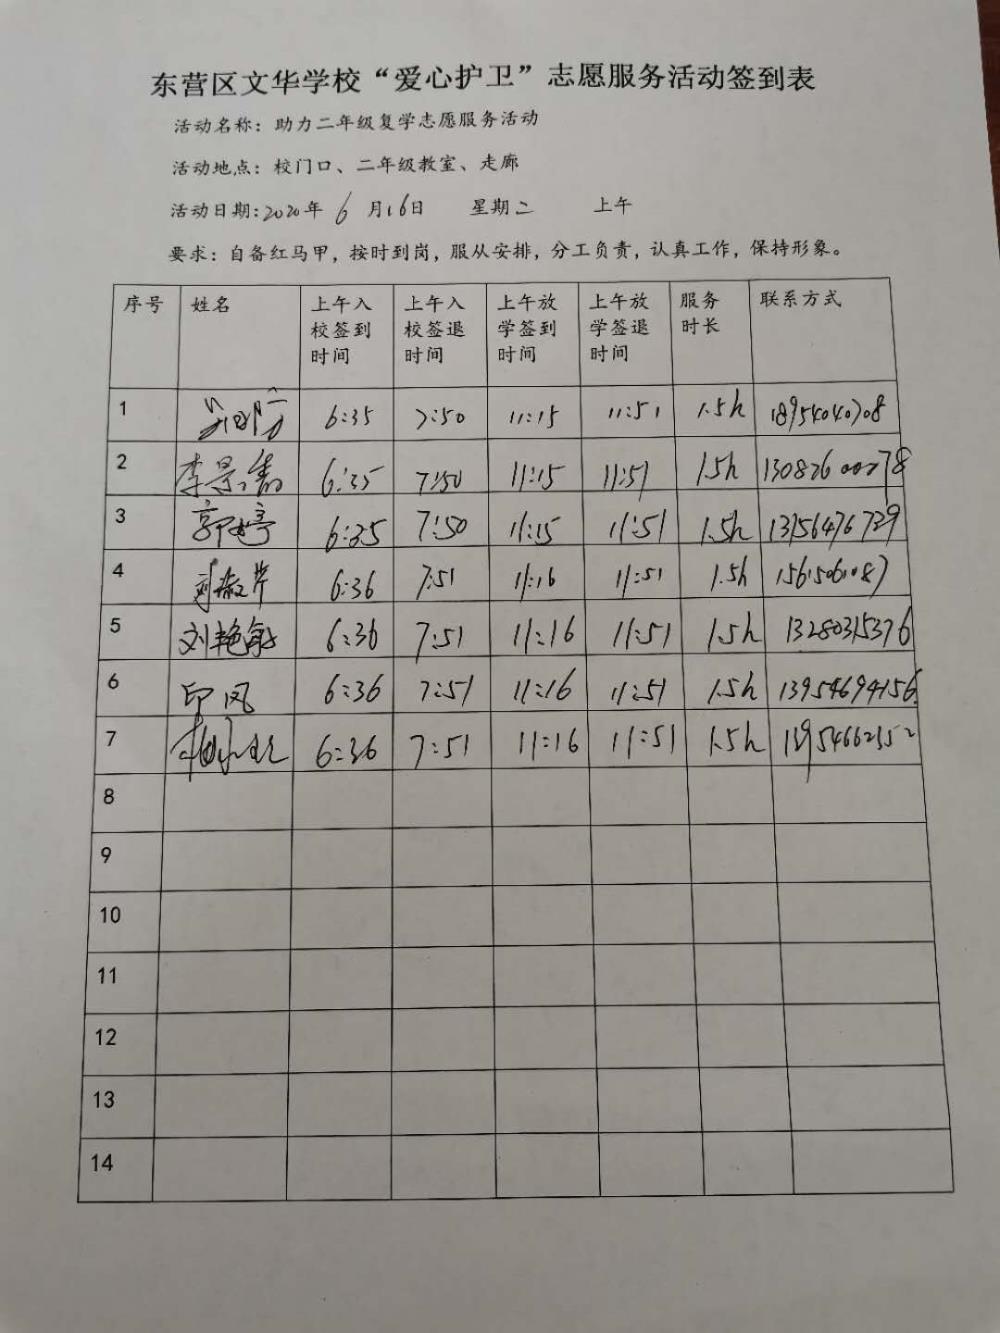 东营区文华学校“爱心护卫”志愿服务活动签到表
活动名称：助力二年级复学志愿服务活动
活动地点：校门口、二年级教室、走廊
活动日期:2020年 6 月16日 星期二 上午
要求：自备红马甲，按时到岗，服从安排，分工负责，认真工作，保持形象。
序号 姓名 上午入校签到时间 上午入校签退时间 上午放学签到时间 上午放学签退时间 服务时长 联系方式
1 6:35 7:50 11:15 11:51 1.5h 18954040708
2 6:35 7:50 11:15 11:51 1.5h
3 郭婷 6:35 7:50 11:15 11:51 1.5h 13156476739
4 6:36 7:51 11:16 11:51 1.5h 15615061087
5 刘艳敏 6:36 7:51 11:16 11:51 1.5h 13280315376
6 印凤 6:36 7:51 11:16 11:51 1.5h 13954694156
7 6:36 7:51 11:16 11:51 1.5h 18954662352
8
9
10
11
12
13
14